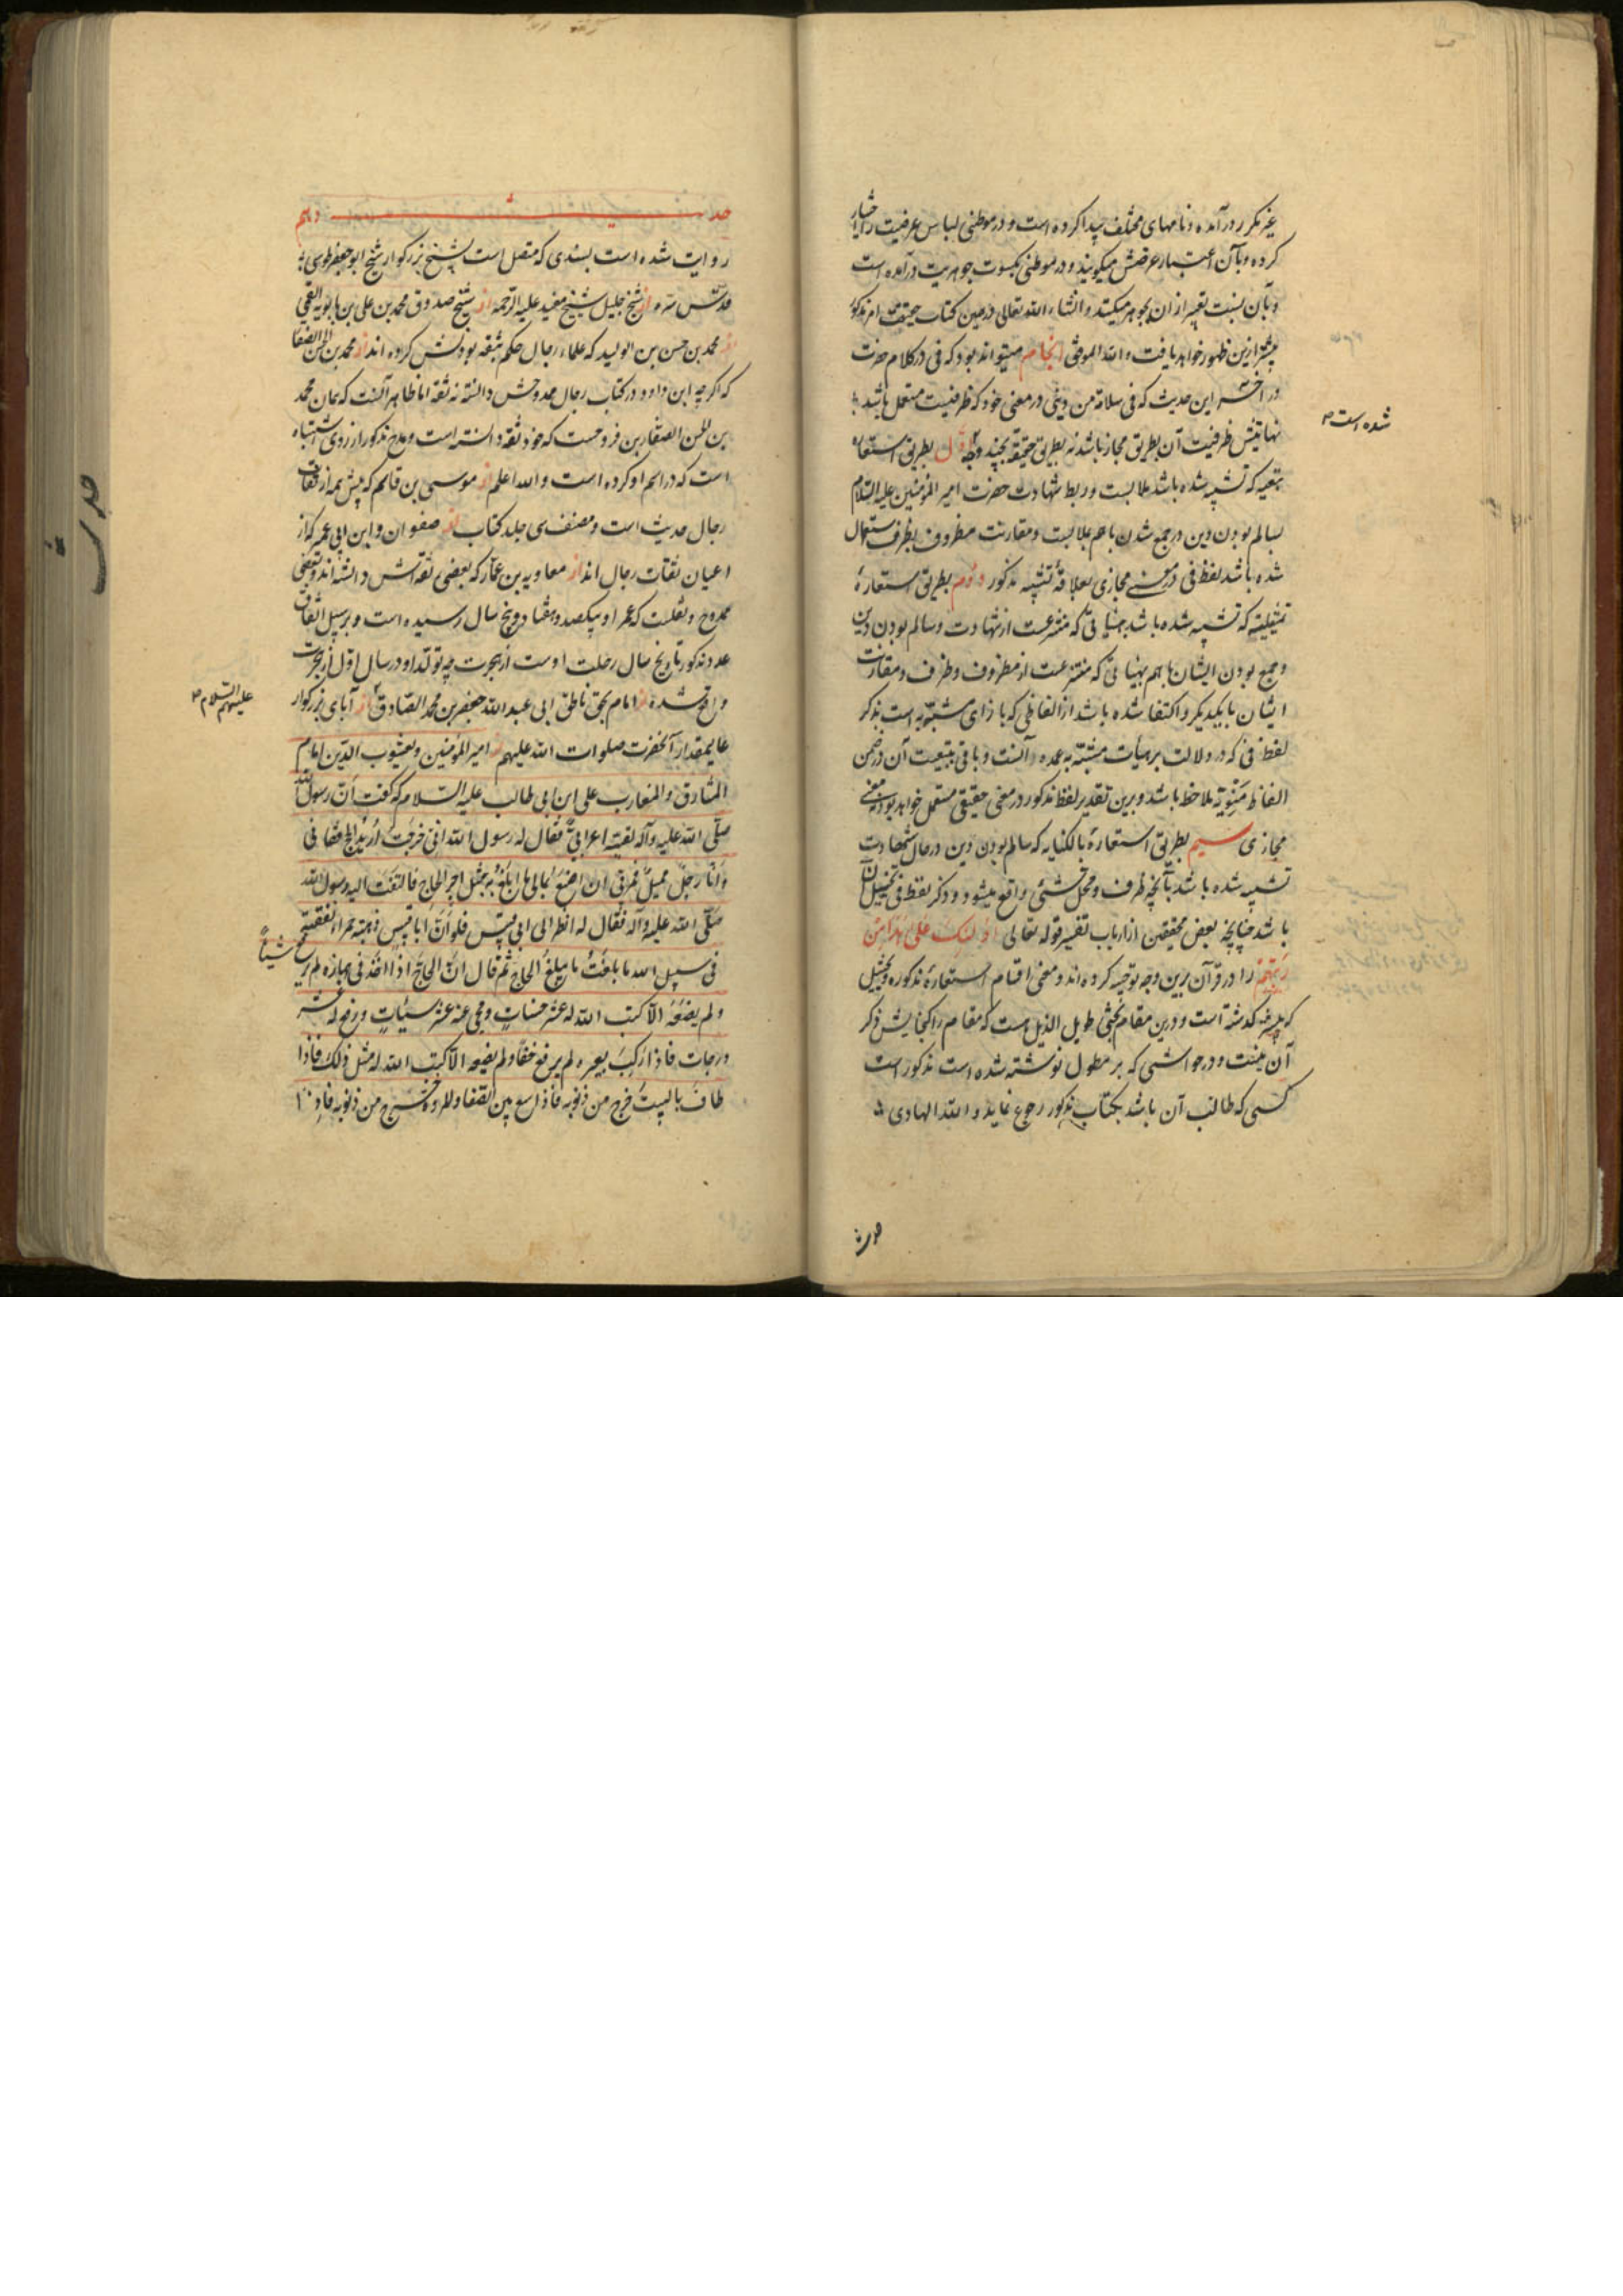 غیر مکرر درآمده و نامهای مختلف پیدا کرده است و در موطنی لباس عرضیت را اختیار
کرده و بآن اعتبار عرضش میگویند و در موطنی بکسوت جوهریت درآمده است
و بآن نسبت تعبیر از ان بجوهر میکنند و انشاء الله تعالی درین کتاب حقیقت امر مذکور
بیشتر ازین ظهور خواهد یافت و الله الموفق انجام میتواند بود که فی در کلام حضرت
در آخر این حدیث که فی سلامة من دینی در معنی خود که ظرفیت مستعمل باشد
نهایتش ظرفیت آن بطریق مجاز باشد نه بطریق حقیقة بچند وجه اول بطریق استعاره
تبعیه که تشبیه شده باشد ملابست و ربط شهادت حضرت امیر المؤمنین علیه السلام
بسالم بودن دین در جمع شدن باهم بملابست و مقارنت مظروف بظرف و استعمال
شده است
شده باشد لفظ فی در معنی مجازی بعلاقهٔ تشبیه مذکور دوم بطریق استعارهٔ
تمثیلیه که تشبیه شده باشد هیئاتی که منتزعست از شهادت و سالم بودن دین
و جمع بودن ایشان باهم بهیئاتی که منتزعست از مظروف و ظرف و مقارنت
ایشان بایکدیگر و اکتفا شده باشد از الفاظی که بازای مشبه به است بذکر
لفظ فی که در دلالت بر هیأت مشبه به عمده آنست و باقی بتبعیت آن در ضمن
الفاظ منویه ملاحظ باشد و برین تقدیر لفظ مذکور در معنی حقیقی مستعمل خواهد بود نه معنی
مجازی سیم بطریق استعارهٔ بالکنایه که سالم بودن دین در حال شهادت
تشبیه شده باشد بآنچه ظرف و محل شیئ واقع میشود و ذکر لفظ فی تخییل آن
باشد چنانچه بعض محققین از ارباب تفسیر قوله تعالی اولئک علی هدی من
ربهم را در قرآن برین وجه توجیه کرده اند و معنی اقسام استعارهٔ مذکوره و تخییل
که پیشتر گذشته است و درین مقام بحثی طویل الذیل است که مقام را گنجایش ذکر
آن نیست و در حواشی که بر مطول نوشته شده است مذکور است
کسی که طالب آن باشد بکتاب مذکور رجوع نماید و الله الهادی
حدیث دهم
روایت شده است بسندی که متصل است بشیخ بزرکوار شیخ ابو جعفر طوسی
قدّس سرّه از شیخ جلیل شیخ مفید علیه الرحمه از شیخ صدوق محمد بن علی بن بابویه القمی
از محمد بن حسن بن الولید که علماء رجال حکم بثقه بودنش کرده اند از محمد بن الحسن الصفار
که اگرچه ابن داود در کتاب رجال ممدوحش دانسته نه ثقه اما ظاهر آنست که همان محمد
بن الحسن الصفار بن فروخست که خود ثقه دانسته است و مدح مذکور از روی اشتباه
است که در اسم او کرده است و الله اعلم از موسی بن قاسم که پیش همه از ثقات
رجال حدیث است و مصنف سی جلد کتاب از صفوان و ابن ابی عمیر که از
اعیان ثقات رجال اند از معاویه بن عمار که بعضی ثقه اش دانسته اند و بعضی
ممدوح و نقلست که عمر او بیکصد و هفتاد و پنج سال رسیده است و بر سبیل اتفاق
عدد مذکور تاریخ سال رحلت اوست از هجرت چه تولد او در سال اول از هجرت
واقع شده از امام بحق ناطق ابی عبد الله جعفر بن محمد الصادق از آبای بزرکوار
علیهم السلام
عالیمقدار آنحضرت صلوات الله علیهم از امیر المؤمنین و یعسوب الدین امام
المشارق و المغارب علی ابن ابی طالب علیه السلام که گفت ان رسول الله
صلّی الله علیه و آله لقیه اعرابی فقال له رسول الله انی خرجت ارید الحج ففاتنی
و انا رجل ممیل فمرنی ان اصنع بمالی ما ابلغ به مثل اجر الحاج فالتفت الیه رسول الله
صلّی الله علیه و آله فقال له انظر الی ابی قبیس فلو انّ ابا قبیس ذهبة حمراء انفقته
فی سبیل الله ما بلغت ما یبلغ الحاج ثم قال ان الحاج اذا اخذ فی جهازه لم یرفع شیئاً
و لم یضعه الا کتب الله له عشر حسنات و محی عنه عشر سیئات و رفع له عشر
درجات فاذا رکب بعیره لم یرفع خفا و لم یضعه الا کتب الله له مثل ذلک فاذا
طاف بالبیت خرج من ذنوبه فاذا سعی بین الصفا و المروة خرج من ذنوبه فاذا
حدیث